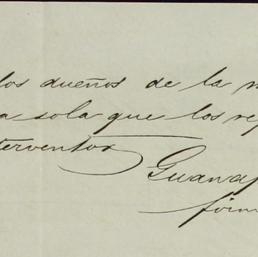 los dueños de la m
a sola que los rep
terventor
Guanaj
firm